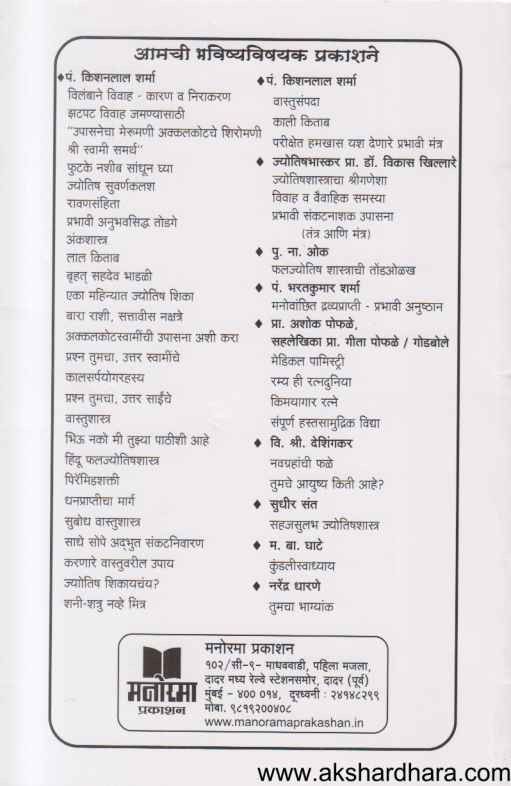 आमची भविष्यविषयक प्रकाशने
♦पं. किशनलाल शर्मा
विलंबाने विवाह - कारण व निराकरण
झटपट विवाह जमण्यासाठी
"उपासनेचा मेरूमणी अक्कलकोटचे शिरोमणी
श्री स्वामी समर्थ"
फुटके नशीब सांधून घ्या
ज्योतिष सुवर्णकलश
रावणसंहिता
प्रभावी अनुभवसिद्ध तोडगे
अंकशास्त्र
लाल किताब
बृहत् सहदेव भाडळी
एका महिन्यात ज्योतिष शिका
बारा राशी, सत्तावीस नक्षत्रे
अक्कलकोटस्वामींची उपासना अशी करा
प्रश्न तुमचा, उत्तर स्वामींचे
कालसर्पयोगरहस्य
प्रश्न तुमचा, उत्तर साईंचे
वास्तुशास्त्र
भिऊ नको मी तुझ्या पाठीशी आहे
हिंदू फलज्योतिषशास्त्र
पिरॅमिडशक्ती
धनप्राप्तीचा मार्ग
सुबोध वास्तुशास्त्र
साधे सोपे अद्भुत संकटनिवारण
करणारे वास्तुवरील उपाय
ज्योतिष शिकायचंय?
शनी-शत्रु नव्हे मित्र
♦पं. किशनलाल शर्मा
वास्तुसंपदा
काली किताब
परीक्षेत हमखास यश देणारे प्रभावी मंत्र
♦ ज्योतिषभास्कर प्रा. डॉ. विकास खिल्लारे
ज्योतिषशास्त्राचा श्रीगणेशा
विवाह व वैवाहिक समस्या
प्रभावी संकटनाशक उपासना
(तंत्र आणि मंत्र)
♦ पु. ना. ओक
फलज्योतिष शास्त्राची तोंडओळख
♦ पं. भरतकुमार शर्मा
मनोवांछित द्रव्यप्राप्ती - प्रभावी अनुष्ठान
♦ प्रा. अशोक पोफळे,
सहलेखिका प्रा. गीता पोफळे / गोडबोले
मेडिकल पामिस्ट्री
रम्य ही रत्नदुनिया
किमयागार रत्ने
संपूर्ण हस्तसामुद्रिक विद्या
♦ वि. श्री. देशिंगकर
नवग्रहांची फळे
तुमचे आयुष्य किती आहे?
♦ सुधीर संत
सहजसुलभ ज्योतिषशास्त्र
♦ म. बा. घाटे
कुंडलीस्वाध्याय
♦ नरेंद्र धारणे
तुमचा भाग्यांक
मनोरमा
प्रकाशन
मनोरमा प्रकाशन
१०२/सी-९- माधववाडी, पहिला मजला,
दादर मध्य रेल्वे स्टेशनसमोर, दादर (पूर्व)
मुंबई - ४०० ०१४, दूरध्वनी : २४१४८२९९
मोबा. ९८१९२००४०८
www.manoramaprakashan.in
www.akshardhara.com